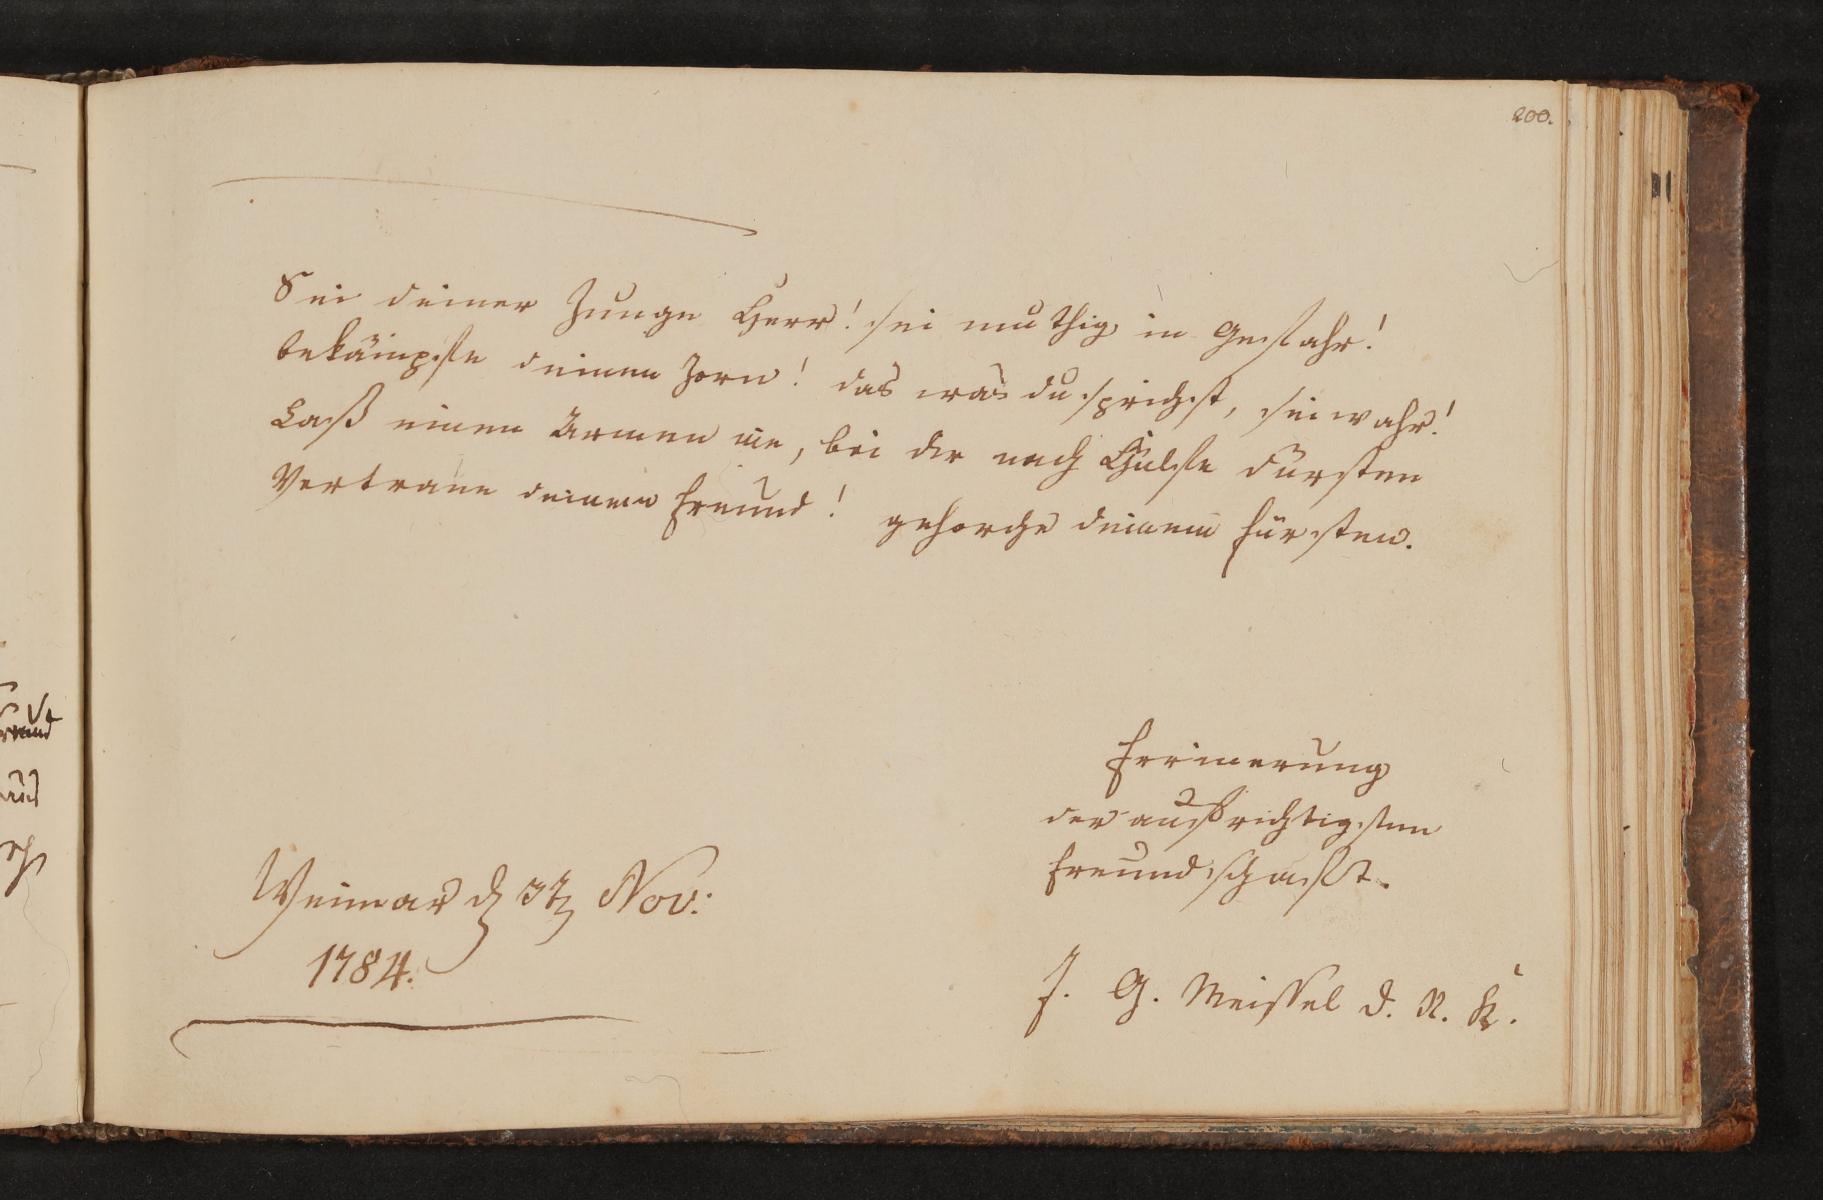 200.
Sei deiner Zunge Herr! sei muthig in Gefahr!
bekämpfe deinen Zorn! das was du sprichst, sei wahr!
Laß einen Armen nie, bei dir nach Hülfe dürsten
Vertraue deinem Freund! gehorche deinem Fürsten.
Errinerung
der aufrichtigsten
Freundschafft.
Weimar d 3t Nov:
1784.
J. G. Meissel d. R. K.